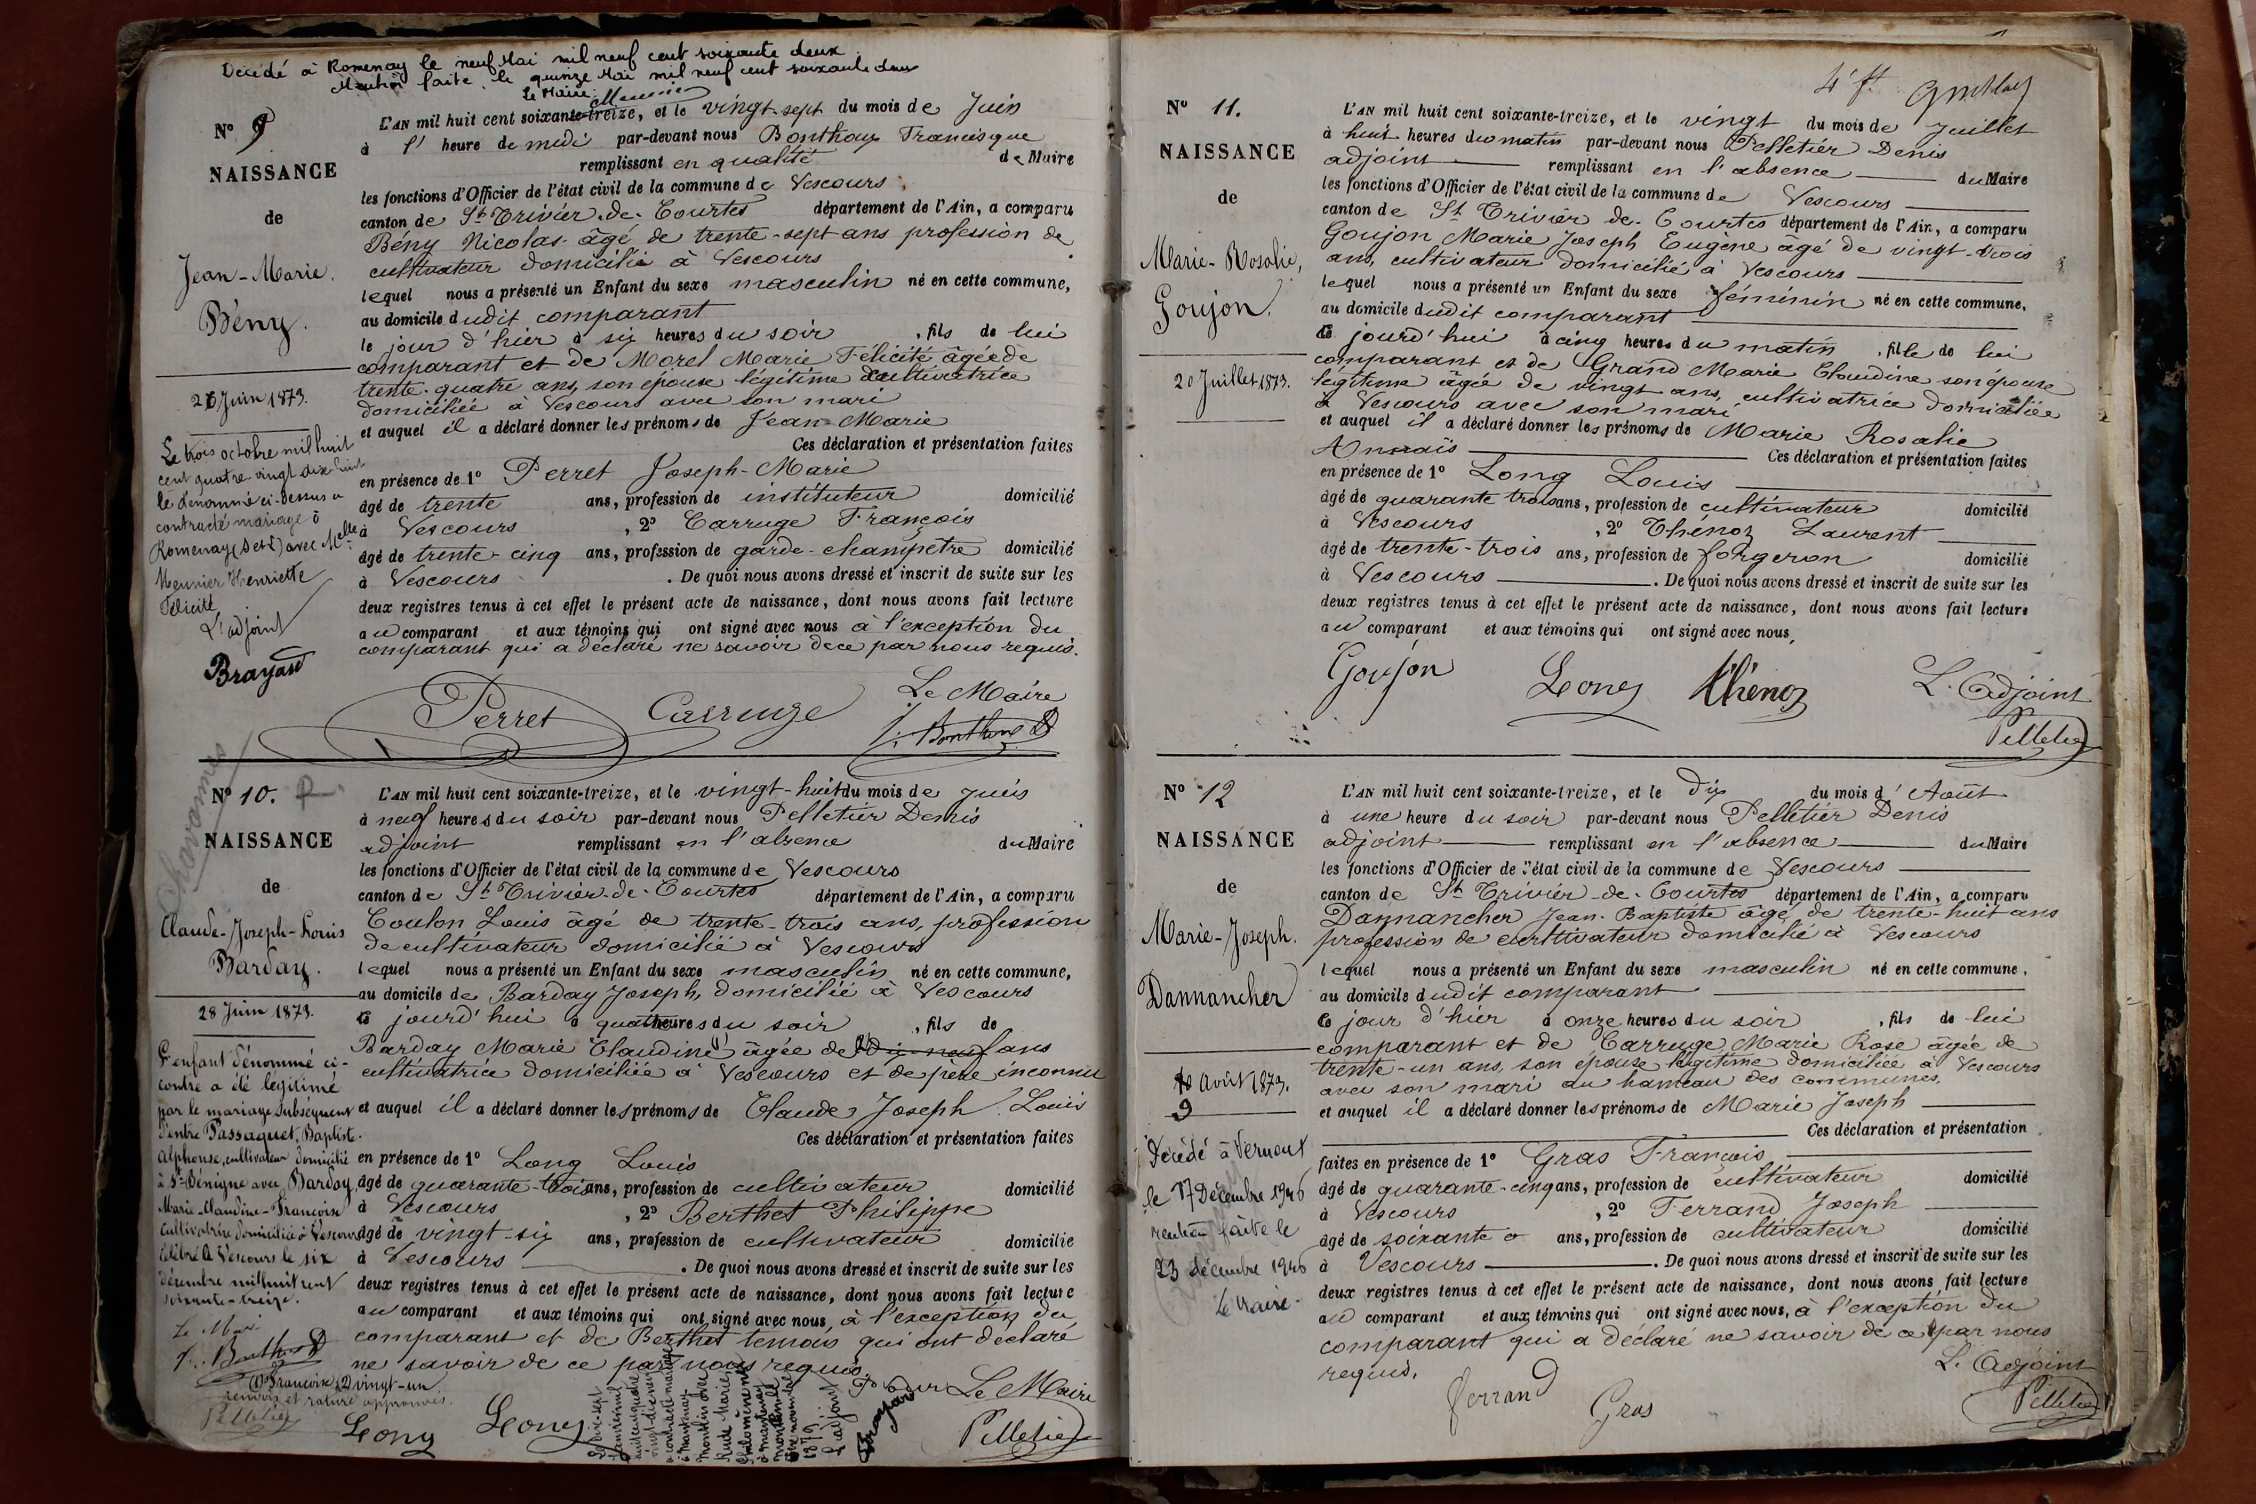 Décédé à Romenay le neuf Mai mil neuf cent soixante deux
Mention faite le quinze Mai mil neuf cent soixante deux
Le Maire
N° 9
NAISSANCE
de
Jean-Marie
Bény.
26 Juin 1873.
Le trois octobre mil huit
cent quatre vingt dix-huit
le dénommé ci-dessus a
contracté mariage à
Romenay (S et L) avec Melle
Meunier Henriette
Félicité
L'adjoint
Brayard
L'AN mil huit cent soixante-treize, et le vingt-sept du mois de Juin
à l' heure de midi par-devant nous Bonthoux Francisque
remplissant en qualité de Maire
les fonctions d'Officier de l'état civil de la commune de Vescours
canton de St Trivier-de-Courtes département de l'Ain, a comparu
Bény Nicolas âgé de trente-sept ans profession de
cultivateur domicilié à Vescours
lequel nous a présenté un Enfant du sexe masculin né en cette commune,
au domicile dudit comparant
le jour d'hier à six heures du soir, fils de lui
comparant et de Morel Marie Félicité âgée de
trente-quatre ans, son épouse légitime cultivatrice
domiciliée à Vescours avec son mari
et auquel il a déclaré donner les prénoms de Jean-Marie
Ces déclaration et présentation faites
en présence de 1° Perret Joseph-Marie
âgé de trente ans, profession de instituteur domicilié
à Vescours, 2° Carruge François
âgé de trente-cinq ans, profession de garde-champêtre domicilié
à Vescours. De quoi nous avons dressé et inscrit de suite sur les
deux registres tenus à cet effet le présent acte de naissance, dont nous avons fait lecture
au comparant et aux témoins qui ont signé avec nous à l'exception du
comparant qui a déclaré ne savoir de ce par nous requis.
Perret Carruge Le Maire
Bonthoux
Chavannes
N° 10.
NAISSANCE
de
Claude-Joseph-Louis
Barday.
28 Juin 1873.
L'enfant dénommé ci-
contre a été légitimé
par le mariage subséquent
d'entre Passaquet, Baptiste-
Alphonse, cultivateur domicilié
à St-Bénigne avec Barday,
Marie-Claudine-Françoise
cultivatrice domiciliée à Vescours
célébré à Vescours le six
décembre mil huit cent
soixante-treize.
Le Maire
Bonthoux
Françoise vingt-un
renvoi et rature approuvés.
Pelletier
L'AN mil huit cent soixante-treize, et le vingt-huit du mois de Juin
à neuf heures du soir par-devant nous Pelletier Denis
adjoint remplissant en l'absence du Maire
les fonctions d'Officier de l'état civil de la commune de Vescours
canton de St Trivier-de-Courtes département de l'Ain, a comparu
Coulon Louis âgé de trente-trois ans, profession
de cultivateur domicilié à Vescours
lequel nous a présenté un Enfant du sexe masculin né en cette commune,
au domicile de Barday Joseph, domicilié à Vescours
ce jourd'hui à quatre heures du soir, fils de
Barday Marie Claudine âgée de dix-neuf ans
cultivatrice domiciliée à Vescours et de père inconnu
et auquel il a déclaré donner les prénoms de Claude Joseph Louis
Ces déclaration et présentation faites
en présence de 1° Long Louis
âgé de quarante-trois ans, profession de cultivateur domicilié
à Vescours, 2° Berthet Philippe
âgé de vingt-six ans, profession de cultivateur domicilié
à Vescours. De quoi nous avons dressé et inscrit de suite sur les
deux registres tenus à cet effet le présent acte de naissance, dont nous avons fait lecture
au comparant et aux témoins qui ont signé avec nous à l'exception du
comparant et de Berthet temoin qui ont déclaré
ne savoir de ce par nous requis.
Pour Le Maire
Long Long Pelletier
L'adjoint
Brayard
4e ft
N° 11.
NAISSANCE
de
Marie-Rosalie,
Goujon.
20 Juillet 1873.
L'AN mil huit cent soixante-treize, et le vingt du mois de Juillet
à huit heures du matin par-devant nous Pelletier Denis
adjoint remplissant en l'absence du Maire
les fonctions d'Officier de l'état civil de la commune de Vescours
canton de St Trivier-de-Courtes département de l'Ain, a comparu
Goujon Marie Joseph Eugène âgé de vingt-trois
ans, cultivateur domicilié à Vescours
lequel nous a présenté un Enfant du sexe féminin né en cette commune,
au domicile dudit comparant
ce jourd'hui à cinq heures du matin, fille de lui
comparant et de Grand Marie Claudine son épouse
légitime âgée de vingt ans, cultivatrice domiciliée
à Vescours avec son mari
et auquel il a déclaré donner les prénoms de Marie Rosalie
Ces déclaration et présentation faites
en présence de 1° Long Louis
âgé de quarante trois ans, profession de cultivateur domicilié
à Vescours, 2° Thénoz Laurent
âgé de trente-trois ans, profession de forgeron domicilié
à Vescours. De quoi nous avons dressé et inscrit de suite sur les
deux registres tenus à cet effet le présent acte de naissance, dont nous avons fait lecture
au comparant et aux témoins qui ont signé avec nous,
Goujon Long Thénoz L'Adjoint
Pelletier
N° 12
NAISSANCE
de
Marie-Joseph.
Dannancher
10 Août 1873.
9
Décédé à Vernoux
le 17 Décembre 1946
mention faite le
23 décembre 1946
Le Maire.
L'AN mil huit cent soixante-treize, et le dix du mois d'Août
à une heure du soir par-devant nous Pelletier Denis
adjoint remplissant en l'absence du Maire
les fonctions d'Officier de l'état civil de la commune de Vescours
canton de St Trivier-de-Courtes département de l'Ain, a comparu
Dannancher Jean-Baptiste âgé de trente-huit ans
profession de cultivateur domicilié à Vescours
lequel nous a présenté un Enfant du sexe masculin né en cette commune,
au domicile dudit comparant
le jour d'hier à onze heures du soir, fils de lui
comparant et de Carruge Marie Rose âgée de
trente-un ans, son épouse légitime domiciliée à Vescours
avec son mari au hameau des communes,
et auquel il a déclaré donner les prénoms de Marie Joseph
Ces déclaration et présentation
faites en présence de 1° Gras François
âgé de quarante-cinq ans, profession de cultivateur domicilié
à Vescours, 2° Ferrand Joseph
âgé de soixante ans, profession de cultivateur domicilié
à Vescours. De quoi nous avons dressé et inscrit de suite sur les
deux registres tenus à cet effet le présent acte de naissance, dont nous avons fait lecture
au comparant et aux témoins qui ont signé avec nous, à l'exception du
comparant qui a déclaré ne savoir de ce par nous
requis.
Ferrand Gras L'Adjoint
Pelletier